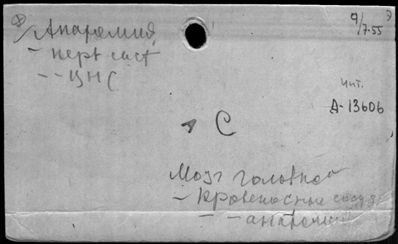 Анатомия
- нерв сист
- - ЦНС
9/7-55
Чит.
А-13606
С
Мозг головной
- кровеносные сосуды
- - анатомия